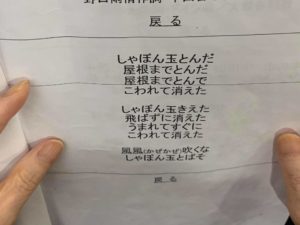 野口雨情作詞・中山
戻る
しゃぼん玉とんだ
屋根までとんだ
屋根までとんで
こわれて消えた
しゃぼん玉きえた
飛ばずに消えた
うまれてすぐに
こわれて消えた
風風(かぜかぜ)吹くな
しゃぼん玉とばそ
戻る